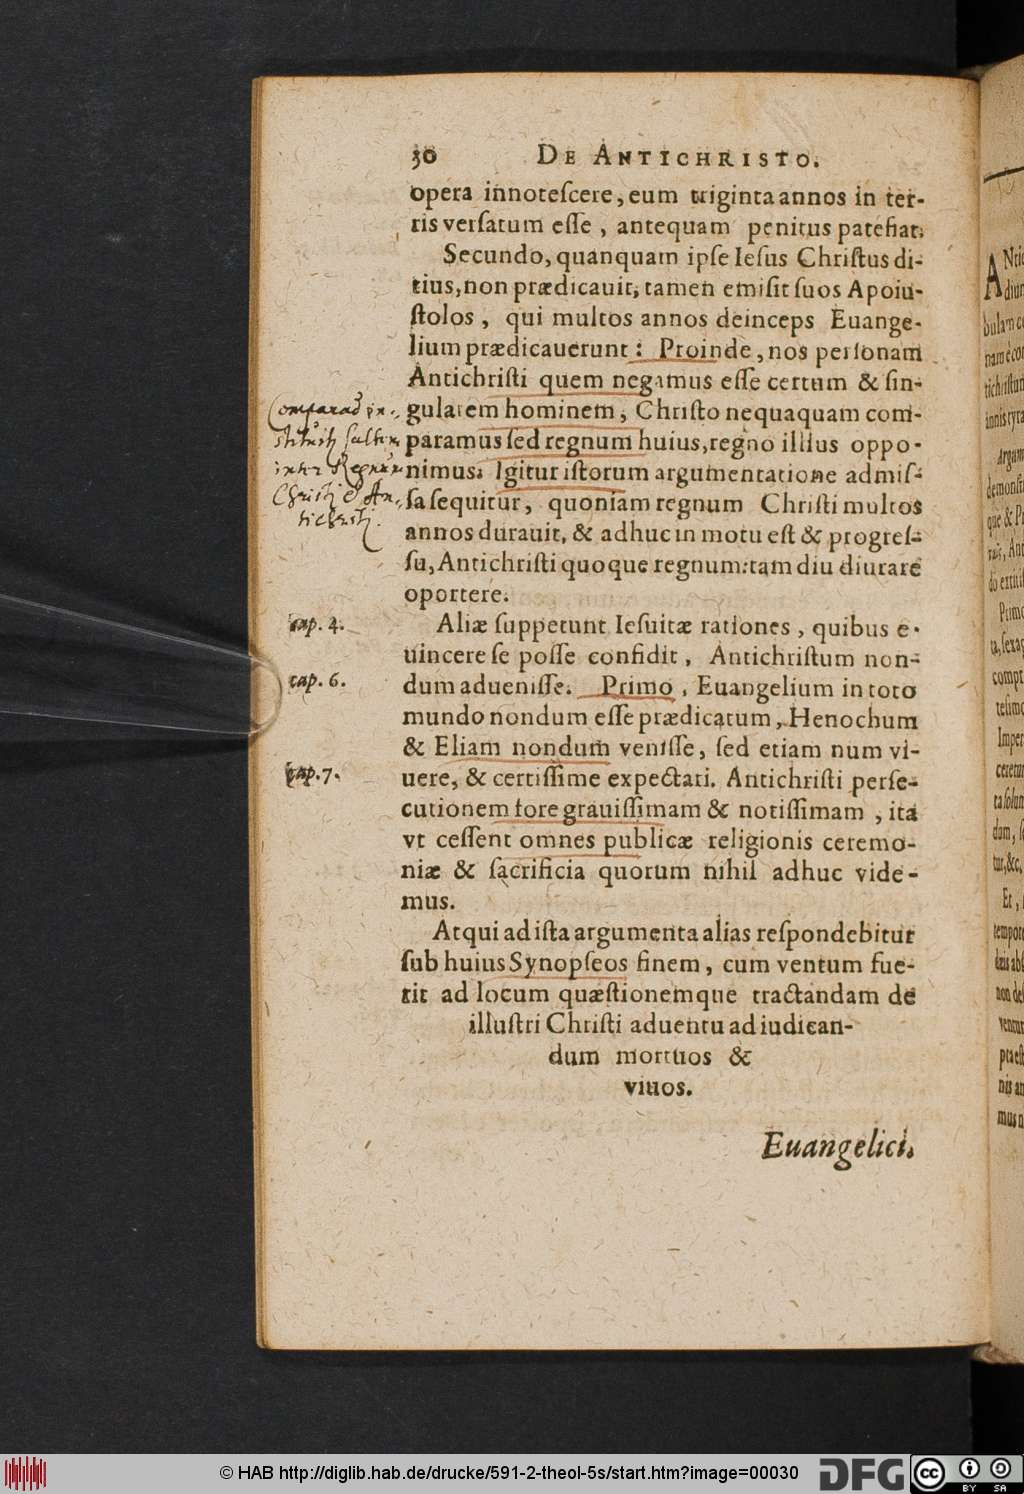 30 DE ANTICHRISTO.
opera innoteſcere, eum triginta annos in ter-
ris verſatum eſſe, antequam penitus patefiat.
Secundo, quanquam ipſe Ieſus Chriſtus di-
tius, non prædicauit, tamen emiſit ſuos Apoiu-
ſtolos, qui multos annos deinceps Euange-
lium prædicauerunt: Proinde, nos perſonam
Antichriſti quem negamus eſſe certum & ſin-
gularem hominem, Chriſto nequaquam com-
paramus ſed regnum huius, regno illius oppo-
nimus. Igitur iſtorum argumentatione admiſ-
ſa ſequitur, quoniam regnum Chriſti multos
annos durauit, & adhuc in motu eſt & progreſ-
ſu, Antichriſti quoque regnum tam diu diurare
oportere.
Comparad in-
ſtituitʒ ſaltem
inter Regnum
Chriſti & An-
tichriſti.
cap. 4.
Aliæ ſuppetunt Ieſuitæ rationes, quibus e-
uincere ſe poſſe confidit, Antichriſtum non-
cap. 6.
dum adueniſſe. Primo, Euangelium in toto
mundo nondum eſſe prædicatum, Henochum
& Eliam nondum veniſſe, ſed etiam num vi-
cap. 7.
uere, & certiſſime expectari. Antichriſti perſe-
cutionem fore grauiſſimam & notiſſimam, ita
vt ceſſent omnes publicæ religionis ceremo-
niæ & ſacrificia quorum nihil adhuc vide-
mus.
Atqui ad iſta argumenta alias reſpondebitur
ſub huius Synopſeos finem, cum ventum fue-
rit ad locum quæſtionemque tractandam de
illuſtri Chriſti aduentu ad iudican-
dum mortuos &
viuos.
Euangelici.
© HAB http://diglib.hab.de/drucke/591-2-theol-5s/start.htm?image=00030
DFG
cc BY SA